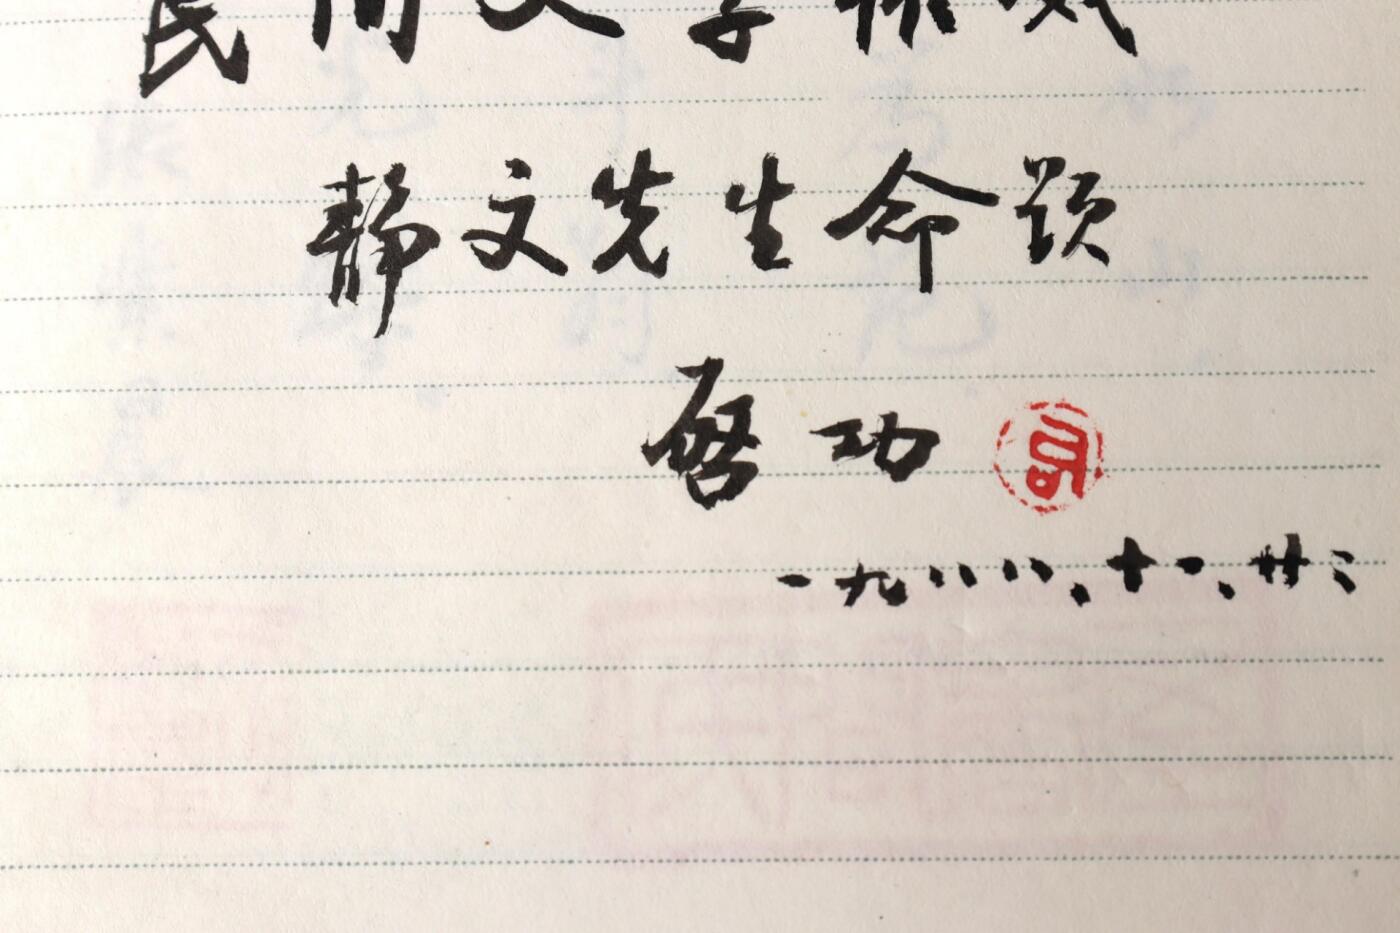 民间文学权威
静文先生命题
启功
一九八八、十一、廿二